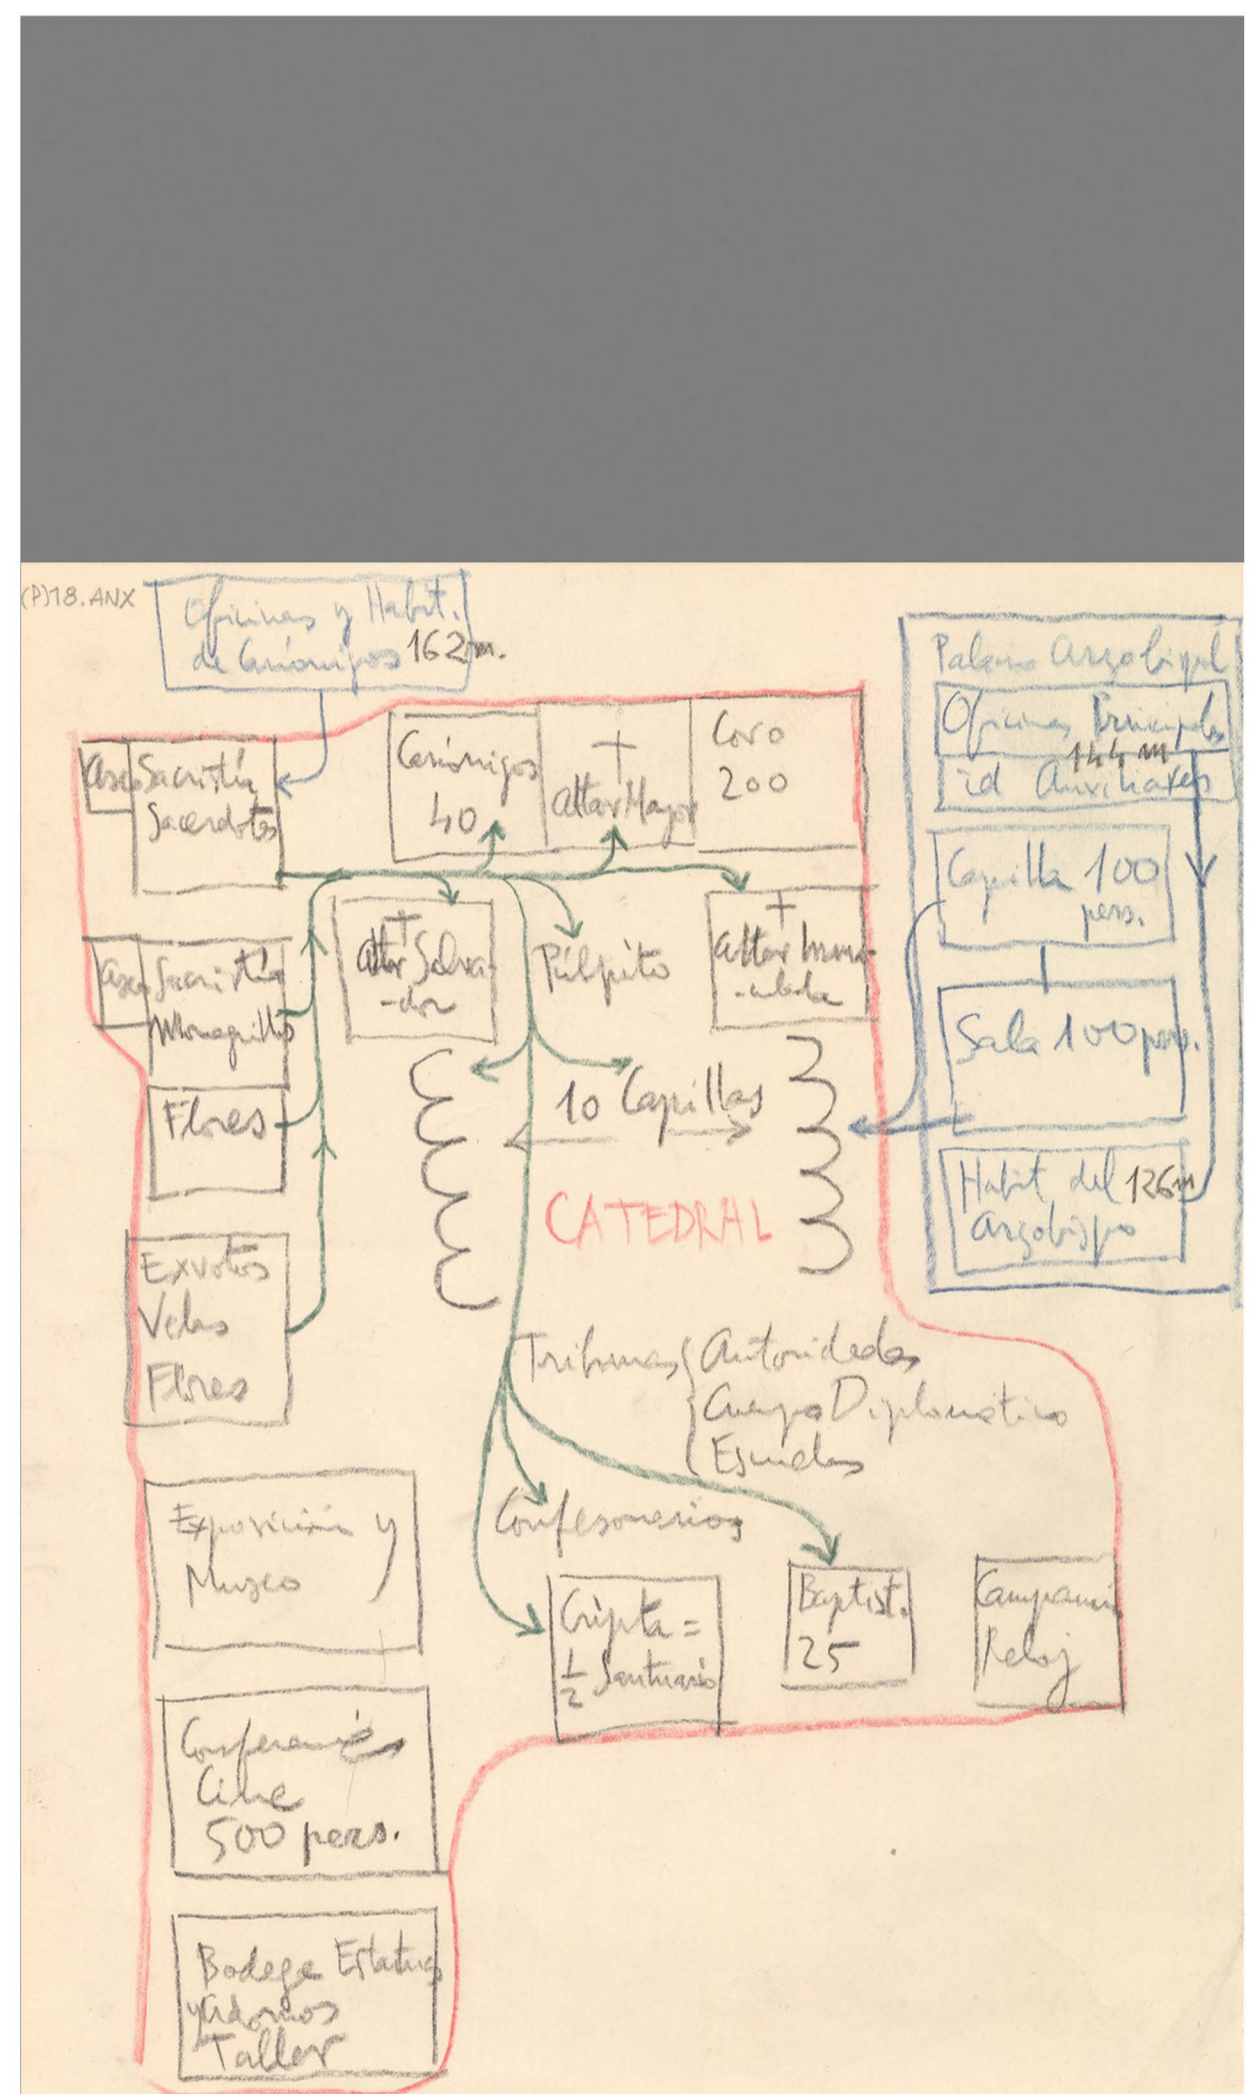 (P)18.ANX
Oficinas y Habit.
de Canónigos 162 m.
Palacio Arzobispal
Oficinas Principales
144 m
id Auxiliares
Capilla 100
pers.
Sala 100 pers.
Habit del 126 m
Arzobispo
Canónigos
40
Altar Mayor
Coro
200
Aseo Sacristía
Sacerdotes
Aseo Sacristía
Monaguillos
Flores
Exvotos
Velas
Flores
Altar Salva-
-dor
Púlpito
Altar Inma-
-culada
10 Capillas
CATEDRAL
Tribunas { Autoridades
Cuerpo Diplomático
Escuelas
Confesonarios
Exposición y
Museo
Cripta =
1/2 Santuario
Baptist.
25
Campanario
Reloj
Conferencias
Cine
500 pers.
Bodega Estatuas
y Adornos
Taller